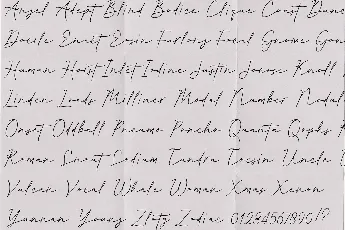 Angel Adept Blind Bodice Clique Coast Dunce
Docile Enact Eosin Furlong Focal Gnome Gon
Human Hoist Inlet Iodine Justin Jocose Knoll
Linden Loads Milliner Modal Number Nodal
Onset Oddball Pneumo Poncho Quanta Qophs
Roman Snout Sodium Tundra Tocsin Uncle
Vulcan Vocal Whale Woman Xmas Xenon
Yunnan Young Zloty Zodiac 0123456789!?